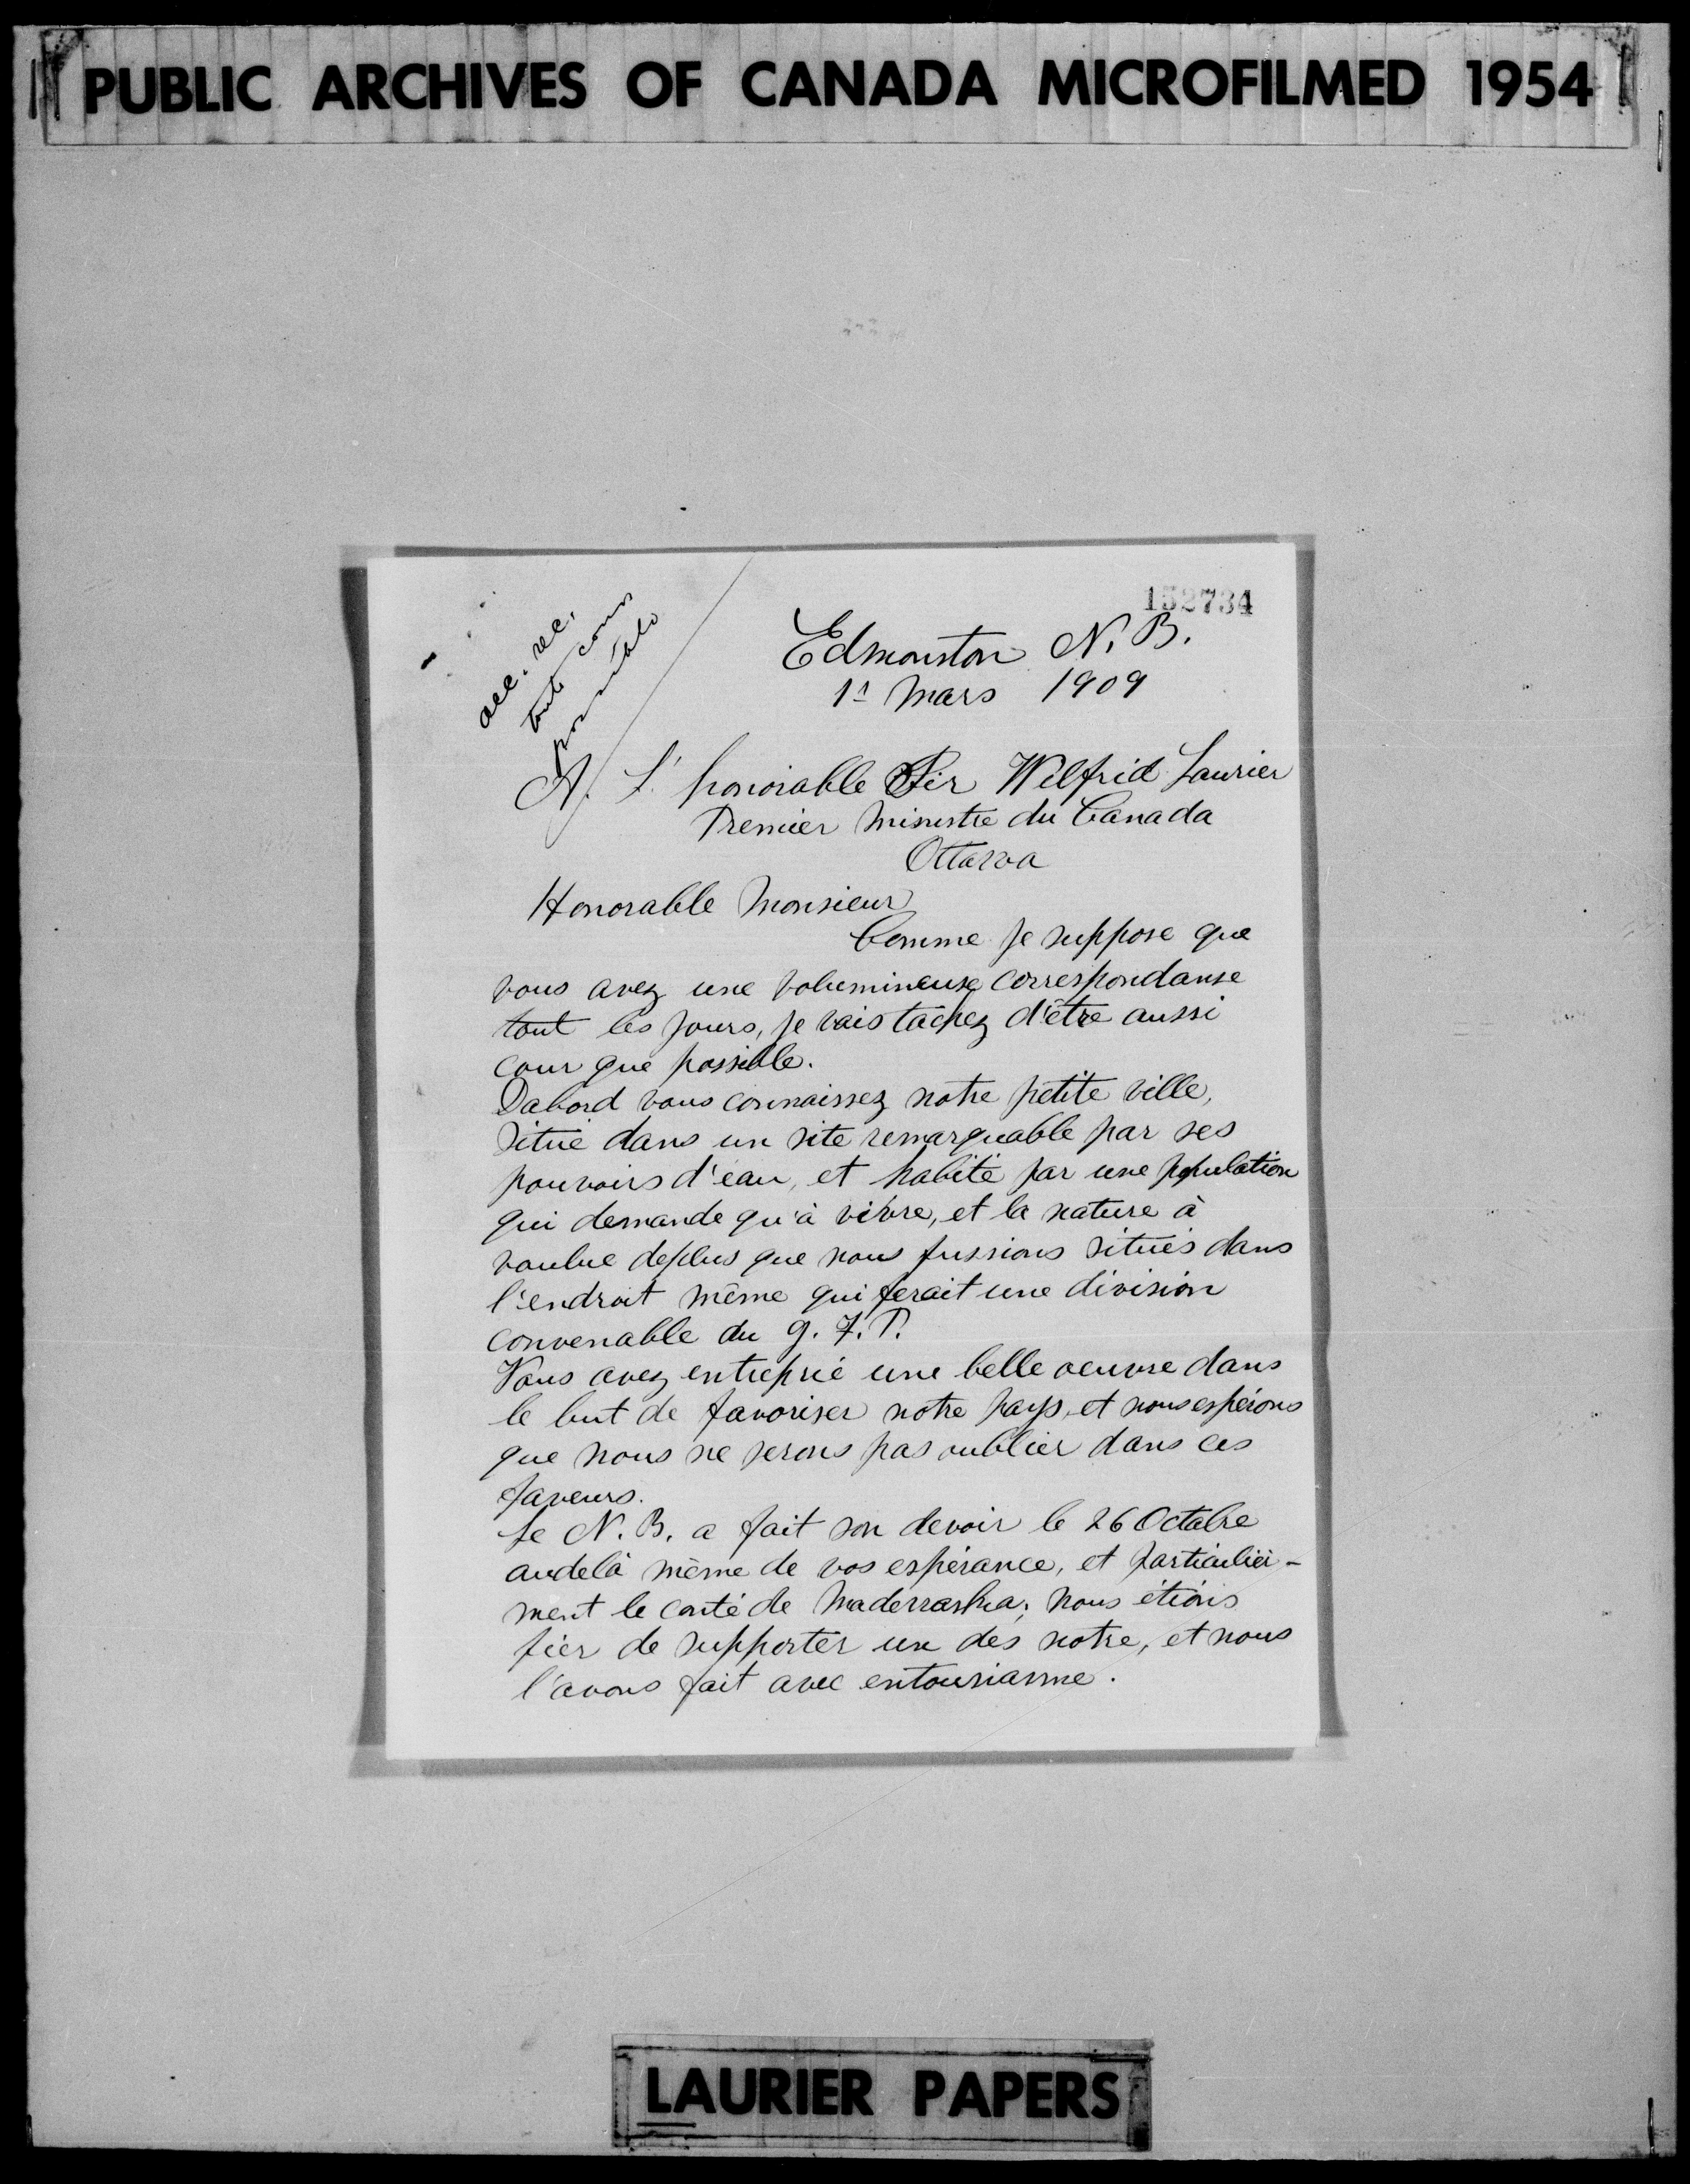 PUBLIC ARCHIVES OF CANADA MICROFILMED 1954
152734
acc. rec.
toute cons
possible
Edmonston N. B.
1r Mars 1909
A. L'honorable Sir Wilfrid Laurier
Premier Ministre du Canada
Ottawa
Honorable Monsieur
Comme je suppose que
vous avez une volumineuse correspondanse
tout les jours, je vais tachez d'être aussi
cour que possible.
Dabord vous connaissez notre petite ville,
situé dans un site remarquable par ses
pouvoirs d'eau, et habité par une population
qui demande qu'à vivre, et la nature à
voulue deplus que nous fussions situés dans
l'endroit même qui ferait une division
convenable du G. T. P.
Vous avez entreprie une belle oeuvre dans
le but de favoriser notre pays, et nous espérons
que nous ne serons pas oublier dans ces
faveurs.
Le N. B. a fait son devoir le 26 Octobre
audelà même de vos espérance, et particulièr-
ment le conté de Madawaska; nous étions
fier de supporter un des notre, et nous
l'avons fait avec entousiasme.
LAURIER PAPERS